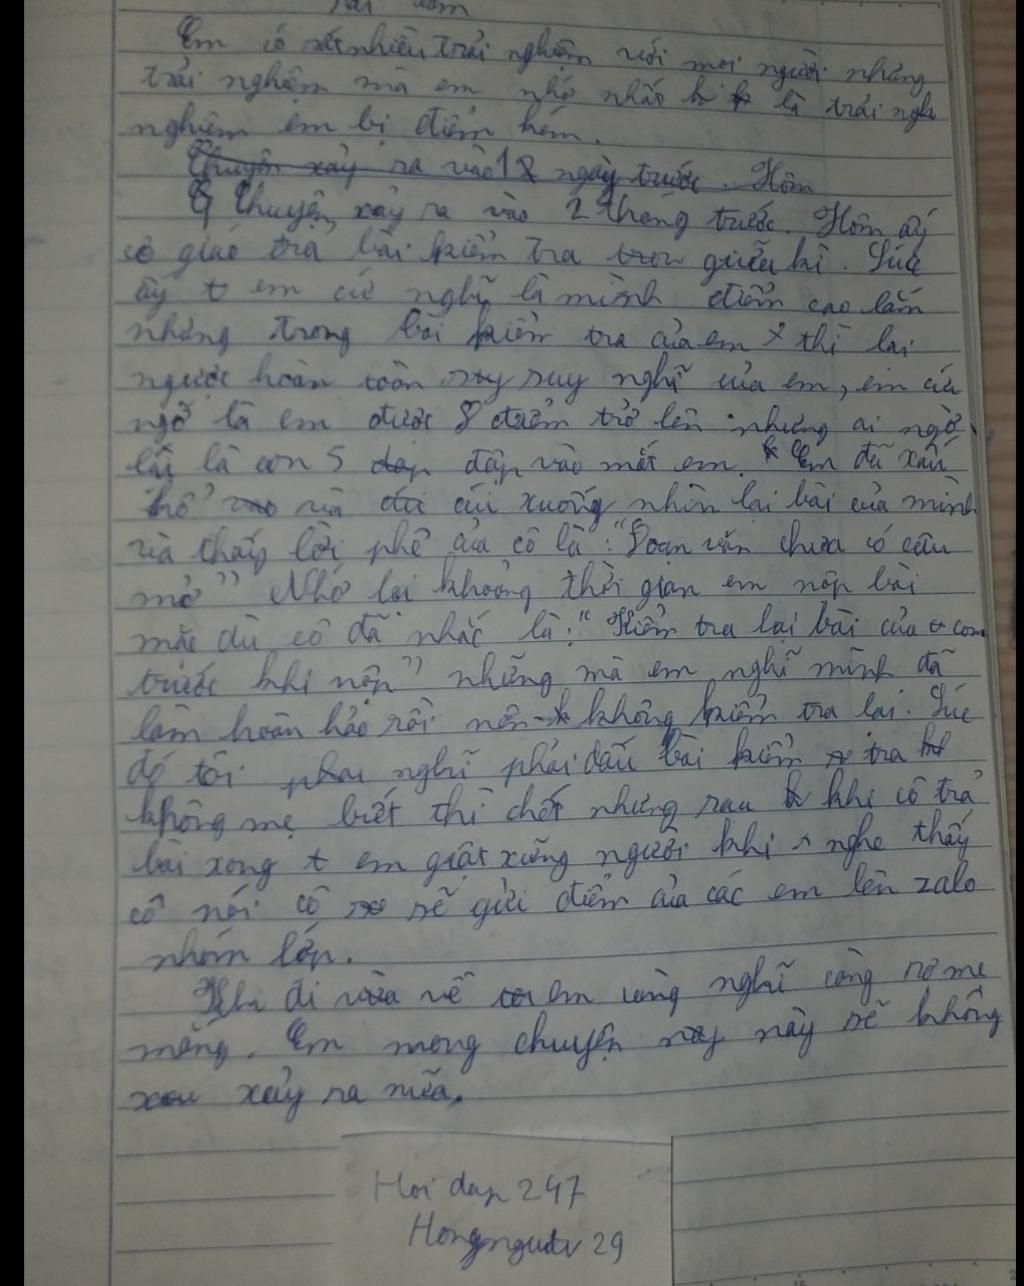 Bài làm
Em có rất nhiều trải nghiệm với mọi người nhưng
trải nghiệm mà em nhớ nhất là trải ngh
nghiệm em bị điểm kém.
Chuyện xảy ra vào 18 ngày trước. Hôm
Chuyện xảy ra vào 2 tháng trước. Hôm ấy
cô giáo trả bài kiểm tra giữa kì. Lúc
ấy t em cứ nghĩ là mình điểm cao lắm
nhưng trong bài kiểm tra của em thì lại
ngược hoàn toàn suy nghĩ của em, em cứ
ngỡ là em được 8 điểm trở lên nhưng ai ngờ
lại là con 5 đập vào mắt em. Em đã xấu
hổ và cúi xuống nhìn lại bài của mình
và thấy lời phê của cô là: "Đoạn văn chưa có câu
mở" Nhớ lại khoảng thời gian em nộp bài
mặc dù cô đã nhắc là: "Kiểm tra lại bài của con
trước khi nộp" nhưng mà em nghĩ mình đã
làm hoàn hảo rồi nên không kiểm tra lại. Lúc
đó tôi phai nghĩ phải dấu bài kiểm tra
không mẹ biết thì chết nhưng sau khi cô trả
bài xong t em giật xững người khi nghe thấy
cô nói cô sẽ gửi điểm của các em lên zalo
nhóm lớp.
Khi đi về em càng nghĩ càng sợ mẹ
mắng. Em mong chuyện này sẽ không
xảy ra nữa.
Hoi dap 247
Hongngutv 29